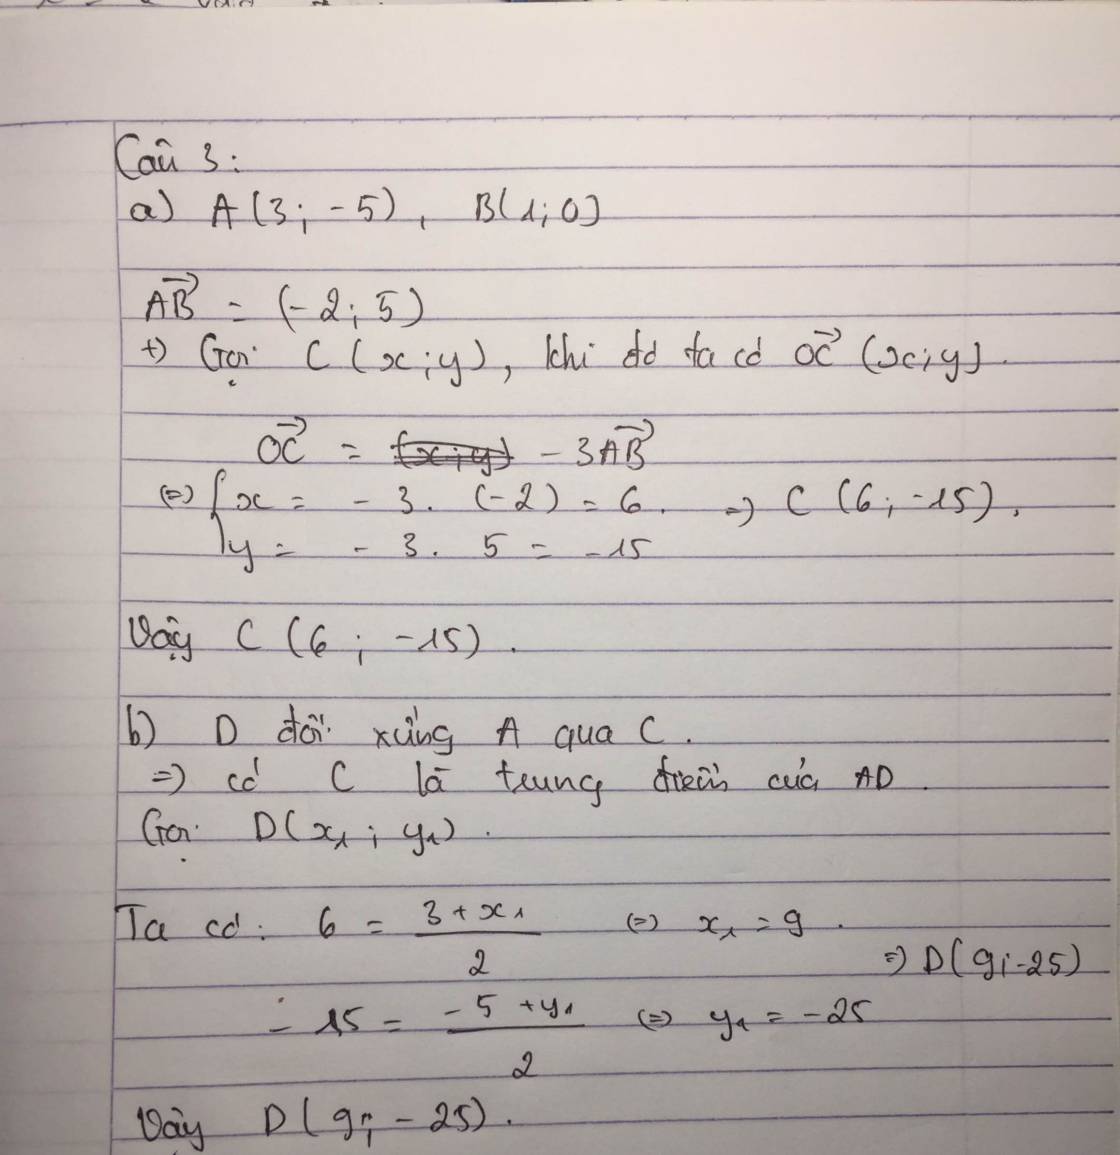 Câu 3:
a) A(3; -5), B(1; 0)
AB = (-2; 5)
+) Gọi C (x; y), khi đó ta có OC (x; y).
OC = - 3AB
(=) { x = - 3. (-2) = 6. =) C (6; -15).
y = - 3. 5 = -15
Vậy C (6; -15).
b) D đối xứng A qua C.
=) có C là trung điểm của AD.
Gọi D(x1; y1).
Ta có: 6 = (3 + x1)/2 (=) x1 = 9.
=) D(9; -25)
- 15 = (-5 + y1)/2 (=) y1 = -25
Vậy D(9; -25).